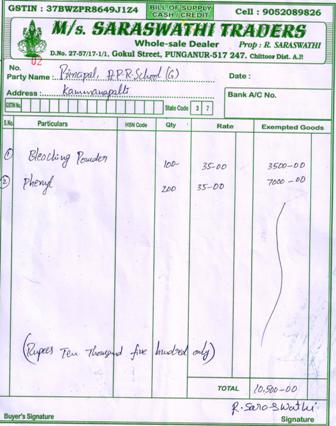 GSTIN : 37BWZPR8649J1Z4 BILL OF SUPPLY CASH / CREDIT Cell : 9052089826
M/s. SARASWATHI TRADERS
Whole-sale Dealer Prop : R. SARASWATHI
D.No. 27-57/17-1/1, Gokul Street, PUNGANUR-517 247. Chittoor Dist. A.P.
No. 02
Party Name : Principal, A.P.R. School (G) Date :
Address : Kammanapalli Bank A/C No.
GSTIN No. State Code 3 7
S.No. Particulars HSN Code Qty Rate Exempted Goods
① Bleaching Powder 100 35-00 3500-00
② Phenyl 200 35-00 7000-00
(Rupees Ten Thousand five hundred only)
TOTAL 10,500-00
R. Saraswathi
Buyer's Signature Signature